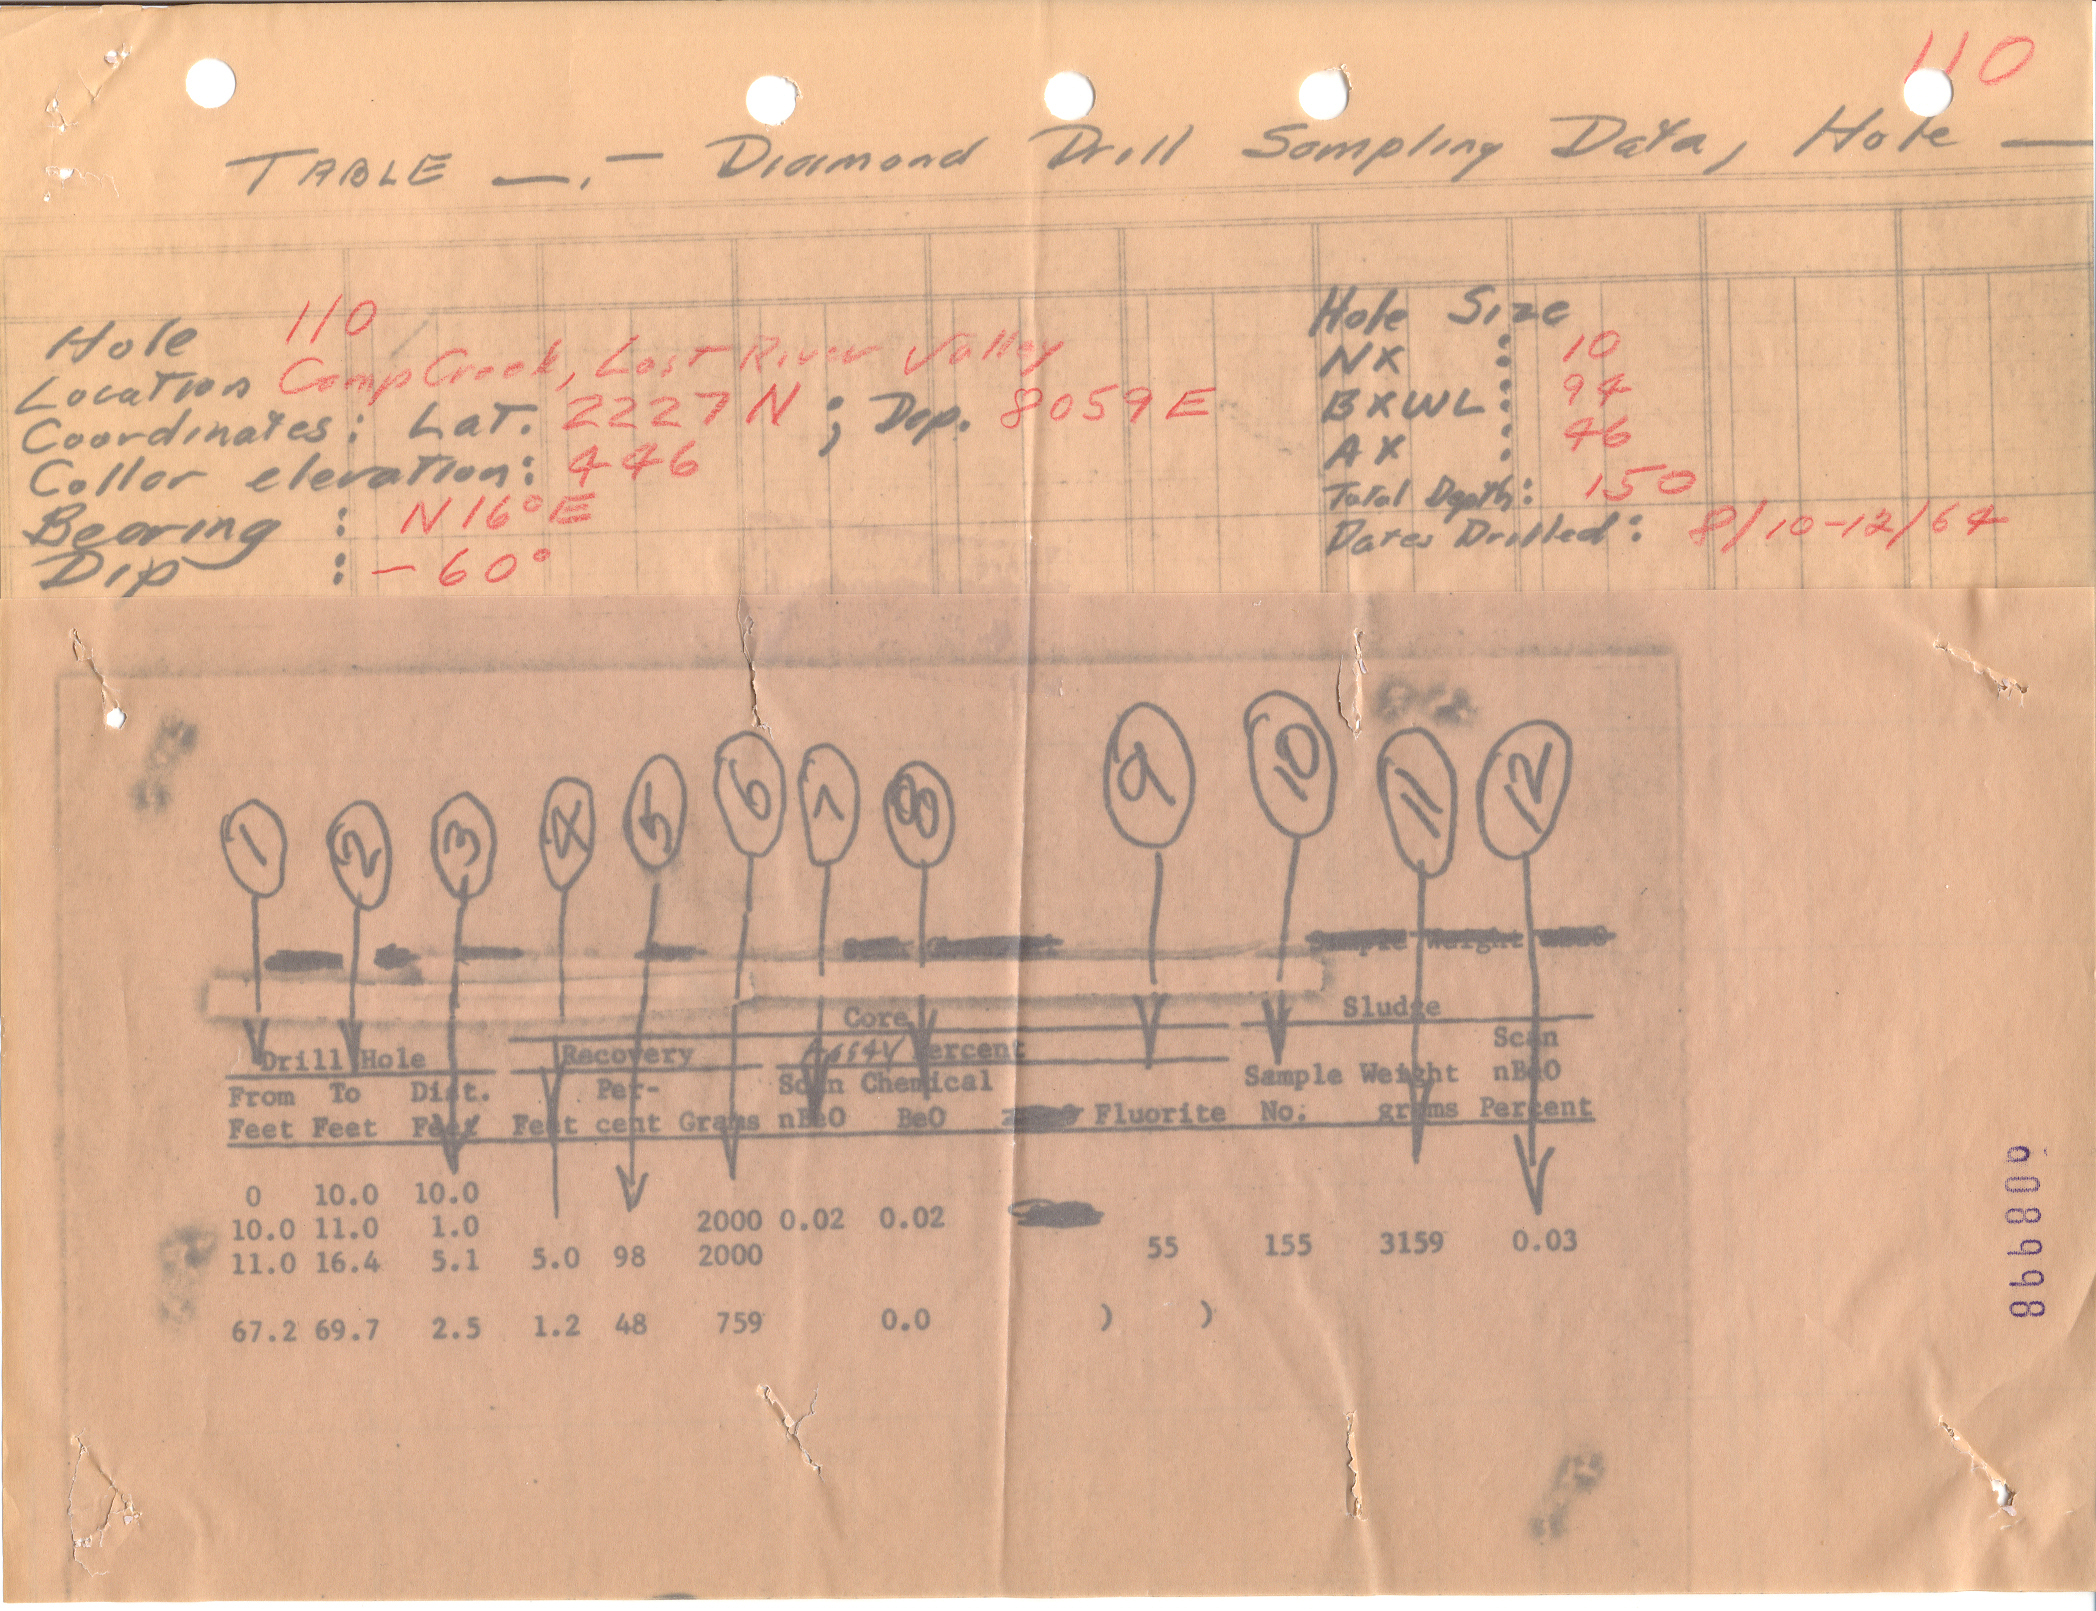 110
TABLE __. - Diamond Drill Sampling Data, Hole __
Hole 110
Location Camp Creek, Lost River Valley
Coordinates: Lat. 2227 N ; Dep. 8059 E
Collar elevation: 446
Bearing : N16°E
Dip : -60°
Hole Size
NX : 10
BXWL : 94
AX : 46
Total Depth: 150
Dates Drilled: 8/10-12/64
1 2 3 4 5 6 7 8 9 10 11 12
Sample Weight
Core Sludge
Drill Hole Recovery Assay Percent Scan
From To Dist. Per- Scan Chemical Sample Weight nBeO
Feet Feet Feet Feet cent Grams nBeO BeO Fluorite No. grams Percent
0 10.0 10.0
10.0 11.0 1.0 2000 0.02 0.02
11.0 16.4 5.1 5.0 98 2000 55 155 3159 0.03
67.2 69.7 2.5 1.2 48 759 0.0 ) )
608998